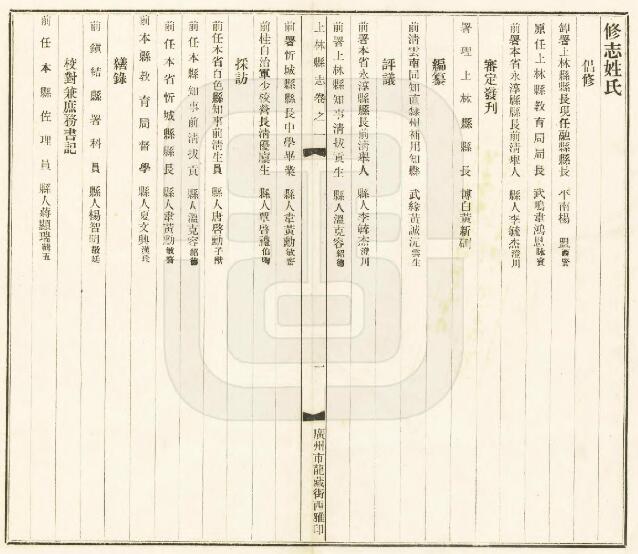 修志姓氏
倡修
卸署上林縣縣長現任融縣縣長 平南楊盟
原任上林縣教育局局長 武鳴韋鴻恩詠寰
前署本省永淳縣縣長前清舉人 縣人李毓杰澄川
審定發刊
署理上林縣縣長 博白黃新碩
編纂
前清雲南同知直隸州補用知縣 武緣黃誠沅雲生
評議
前署本省永淳縣縣長前清舉人 縣人李毓杰澄川
前署上林縣知事前清拔貢生 縣人溫克容紹德
上林縣志卷之一
一
廣州市龍藏街西雅印
前署忻城縣縣長中學畢業 縣人韋黃勳敏齋
前桂自治軍少校營長清優廩生 縣人覃啓禮伯陶
採訪
前任本省百色縣知事前清生員 縣人唐啓勳子猷
前任本縣知事前清拔貢 縣人溫克容紹德
前任本省忻城縣縣長 縣人韋黃勳敏齋
前本縣教育局督學 縣人夏文興漢氏
繕錄
前鎮結縣署科員 縣人楊智明毅廷
校對兼庶務書記
前任本縣佐理員 縣人蔣顯瑞輯五